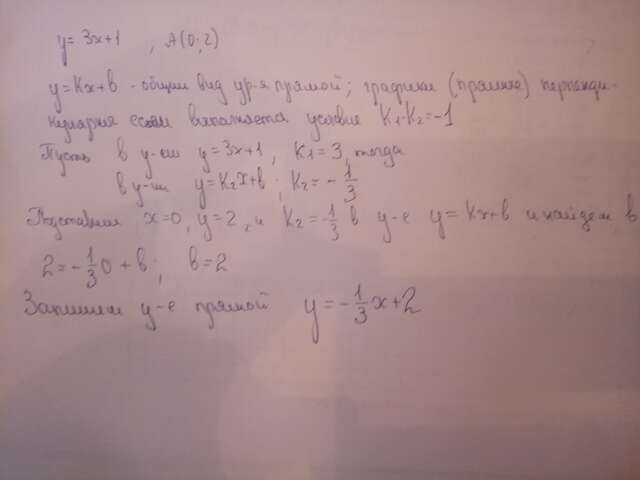 y = 3x+1 , A(0;2)
y=kx+b - общий вид ур-я прямой; графики (прямые) перпенди-
кулярны если выполняется условие k₁·k₂=-1
Пусть в у-ии y=3x+1, k₁=3, тогда
в у-ии y=k₂x+b; k₂=-1/3
Подставим x=0, y=2, и k₂=1/3 в у-е y=kx+b и найдем b
2=-1/3·0+b; b=2
Запишем у-е прямой y=-1/3x+2